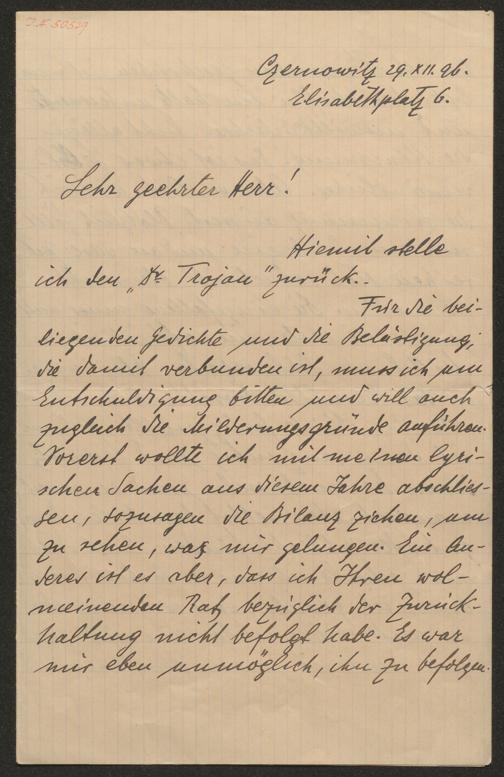 J.N. 50529
Czernowitz 29.XII.96.
Elisabethplatz 6.
Sehr geehrter Herr!
Hiemit stelle
ich den „Dr Trojan" zurück.
Für die bei-
liegenden Gedichte und die Belästigung,
die damit verbunden ist, muss ich um
Entschuldigung bitten und will auch
zugleich die Milderungsgründe anführen.
Vorerst wollte ich mit meinen lyri-
schen Sachen aus diesem Jahre abschlies-
sen, sozusagen die Bilanz ziehen, um
zu sehen, was mir gelungen. Ein An-
deres ist es aber, dass ich Ihren wol-
meinenden Rat bezüglich der Zurück-
haltung nicht befolgt habe. Es war
mir eben unmöglich, ihn zu befolgen.